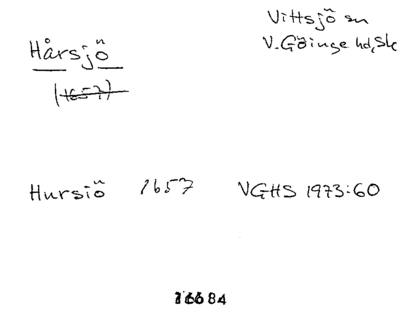 Vittsjö sn
V. Göinge hd, Sk
Hårsjö
(1657)
Hursiö 1657 VGHS 1973:60